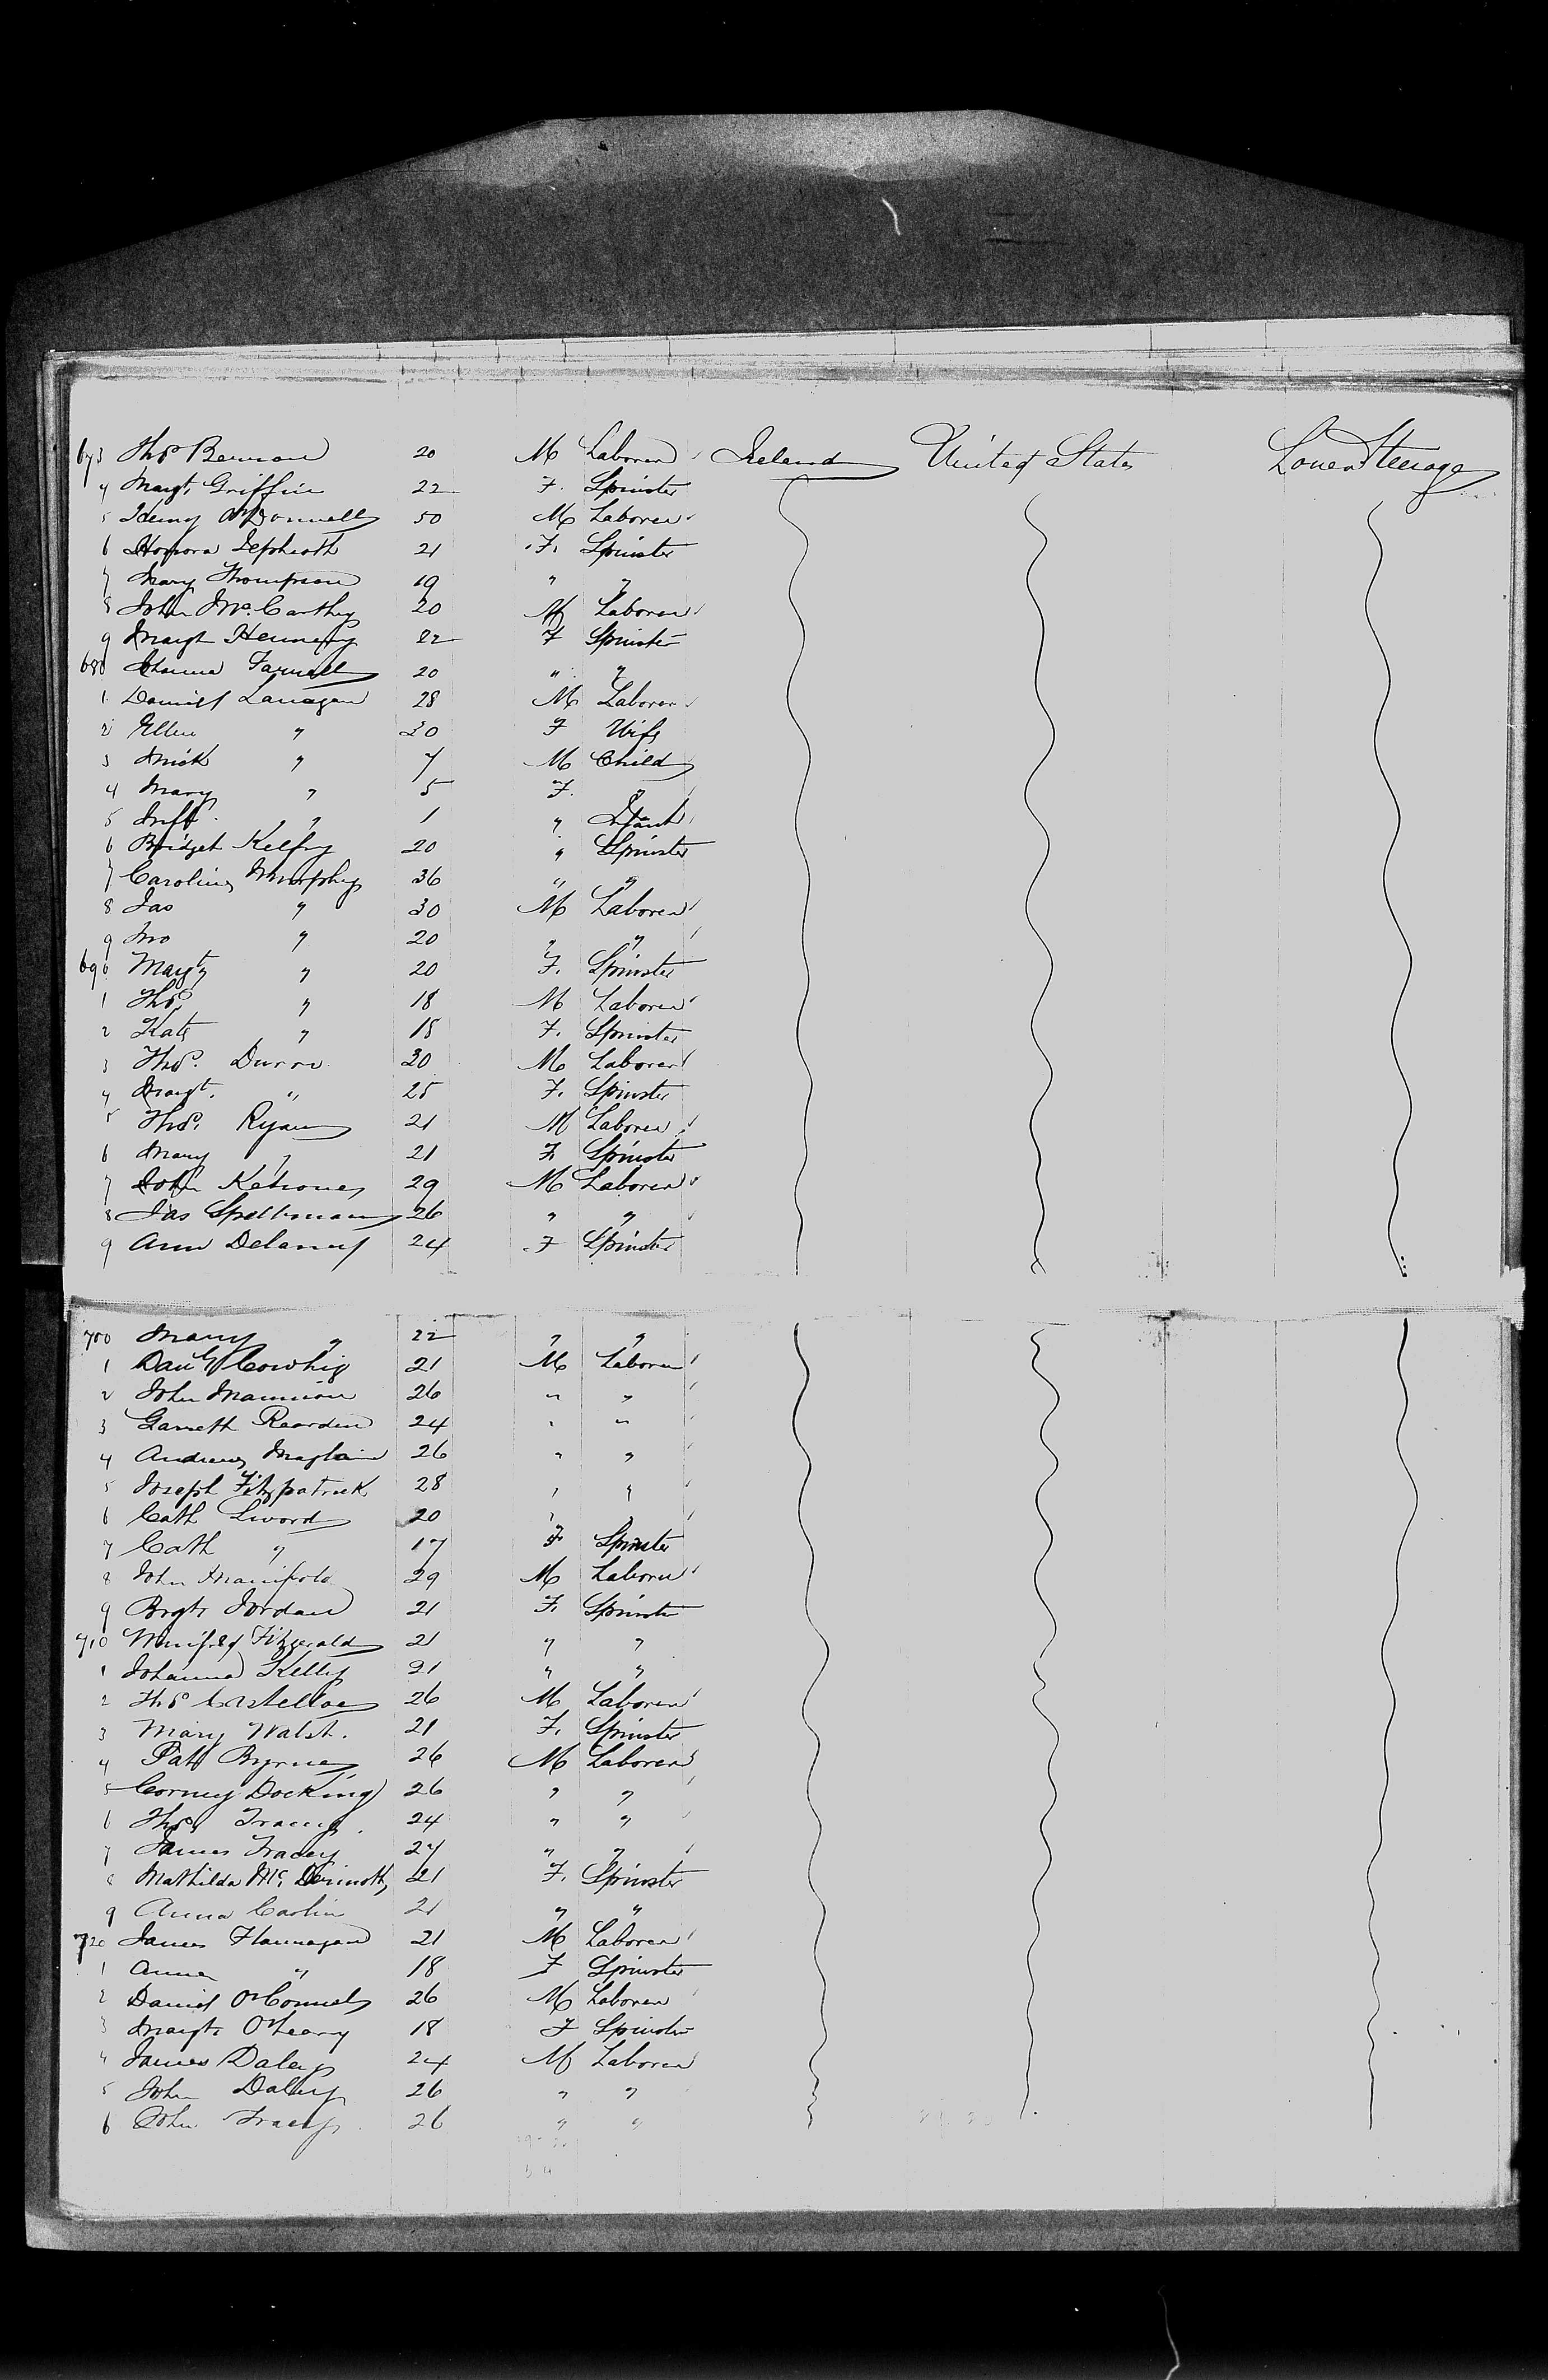 673 Thos Bennan 20 M Laborer Ireland United States Lower Steerage
4 Margt. Griffin 22 F. Spinster
5 Henry O'Donnell 50 M Laborer
6 Honora 21 F. Spinster
7 Mary Thompson 19 " "
8 John Mc.Carthy 20 M Laborer
9 Margt Hennessy 22 F Spinster
680 Johanna Farnell 20 " "
1 Daniel Lanagan 28 M Laborer
2 Ellen " 30 F Wife
3 Mick " 7 M Child
4 Mary " 5 F. "
5 Inft. " 1 " Infant
6 Bridget 20 " Spinster
7 Caroline Murphy 36 " "
8 Jas " 30 M Laborer
9 Jno " 20 " "
690 Margt " 20 F. Spinster
1 Thos " 18 M Laborer
2 Kate " 18 F. Spinster
3 Thos. Dunn 30 M Laborer
4 Margt. " 25 F. Spinster
5 Thos. Ryan 21 M Laborer
6 Mary " 21 F. Spinster
7 John 29 M Laborer
8 Jas Spellman 26 " "
9 Ann Delaney 24 F Spinster
700 Mary " 22 " "
1 Danl Cowhig 21 M Laborer
2 John Mannion 26 " "
3 Garrett Reardin 24 " "
4 Andrew 26 " "
5 Joseph Fitzpatrick 28 " "
6 Cath Sword 20 "
7 Cath " 17 F Spinster
8 John Manifold 29 M Laborer
9 Brgt. Jordan 21 F. Spinster
710 Winifred Fitzgerald 21 " "
1 Johanna Kelly 21 " "
2 Thos Castelloe 26 M Laborer
3 Mary Walsh. 21 F. Spinster
4 Patt Byrne 26 M Laborer
5 Corney Docking 26 " "
6 Thos. Tracey. 24 " "
7 James Tracey 27 " "
8 Mathilda Mc. Dermott 21 F. Spinster
9 Anna Carlin 21 " "
720 James Flannagan 21 M Laborer
1 Anna " 18 F Spinster
2 Daniel O'Connel 26 M Laborer
3 Margt. O'Leary 18 F Spinster
4 James Daley 24 M Laborer
5 John Daley 26 " "
6 John Tracey 26 " "